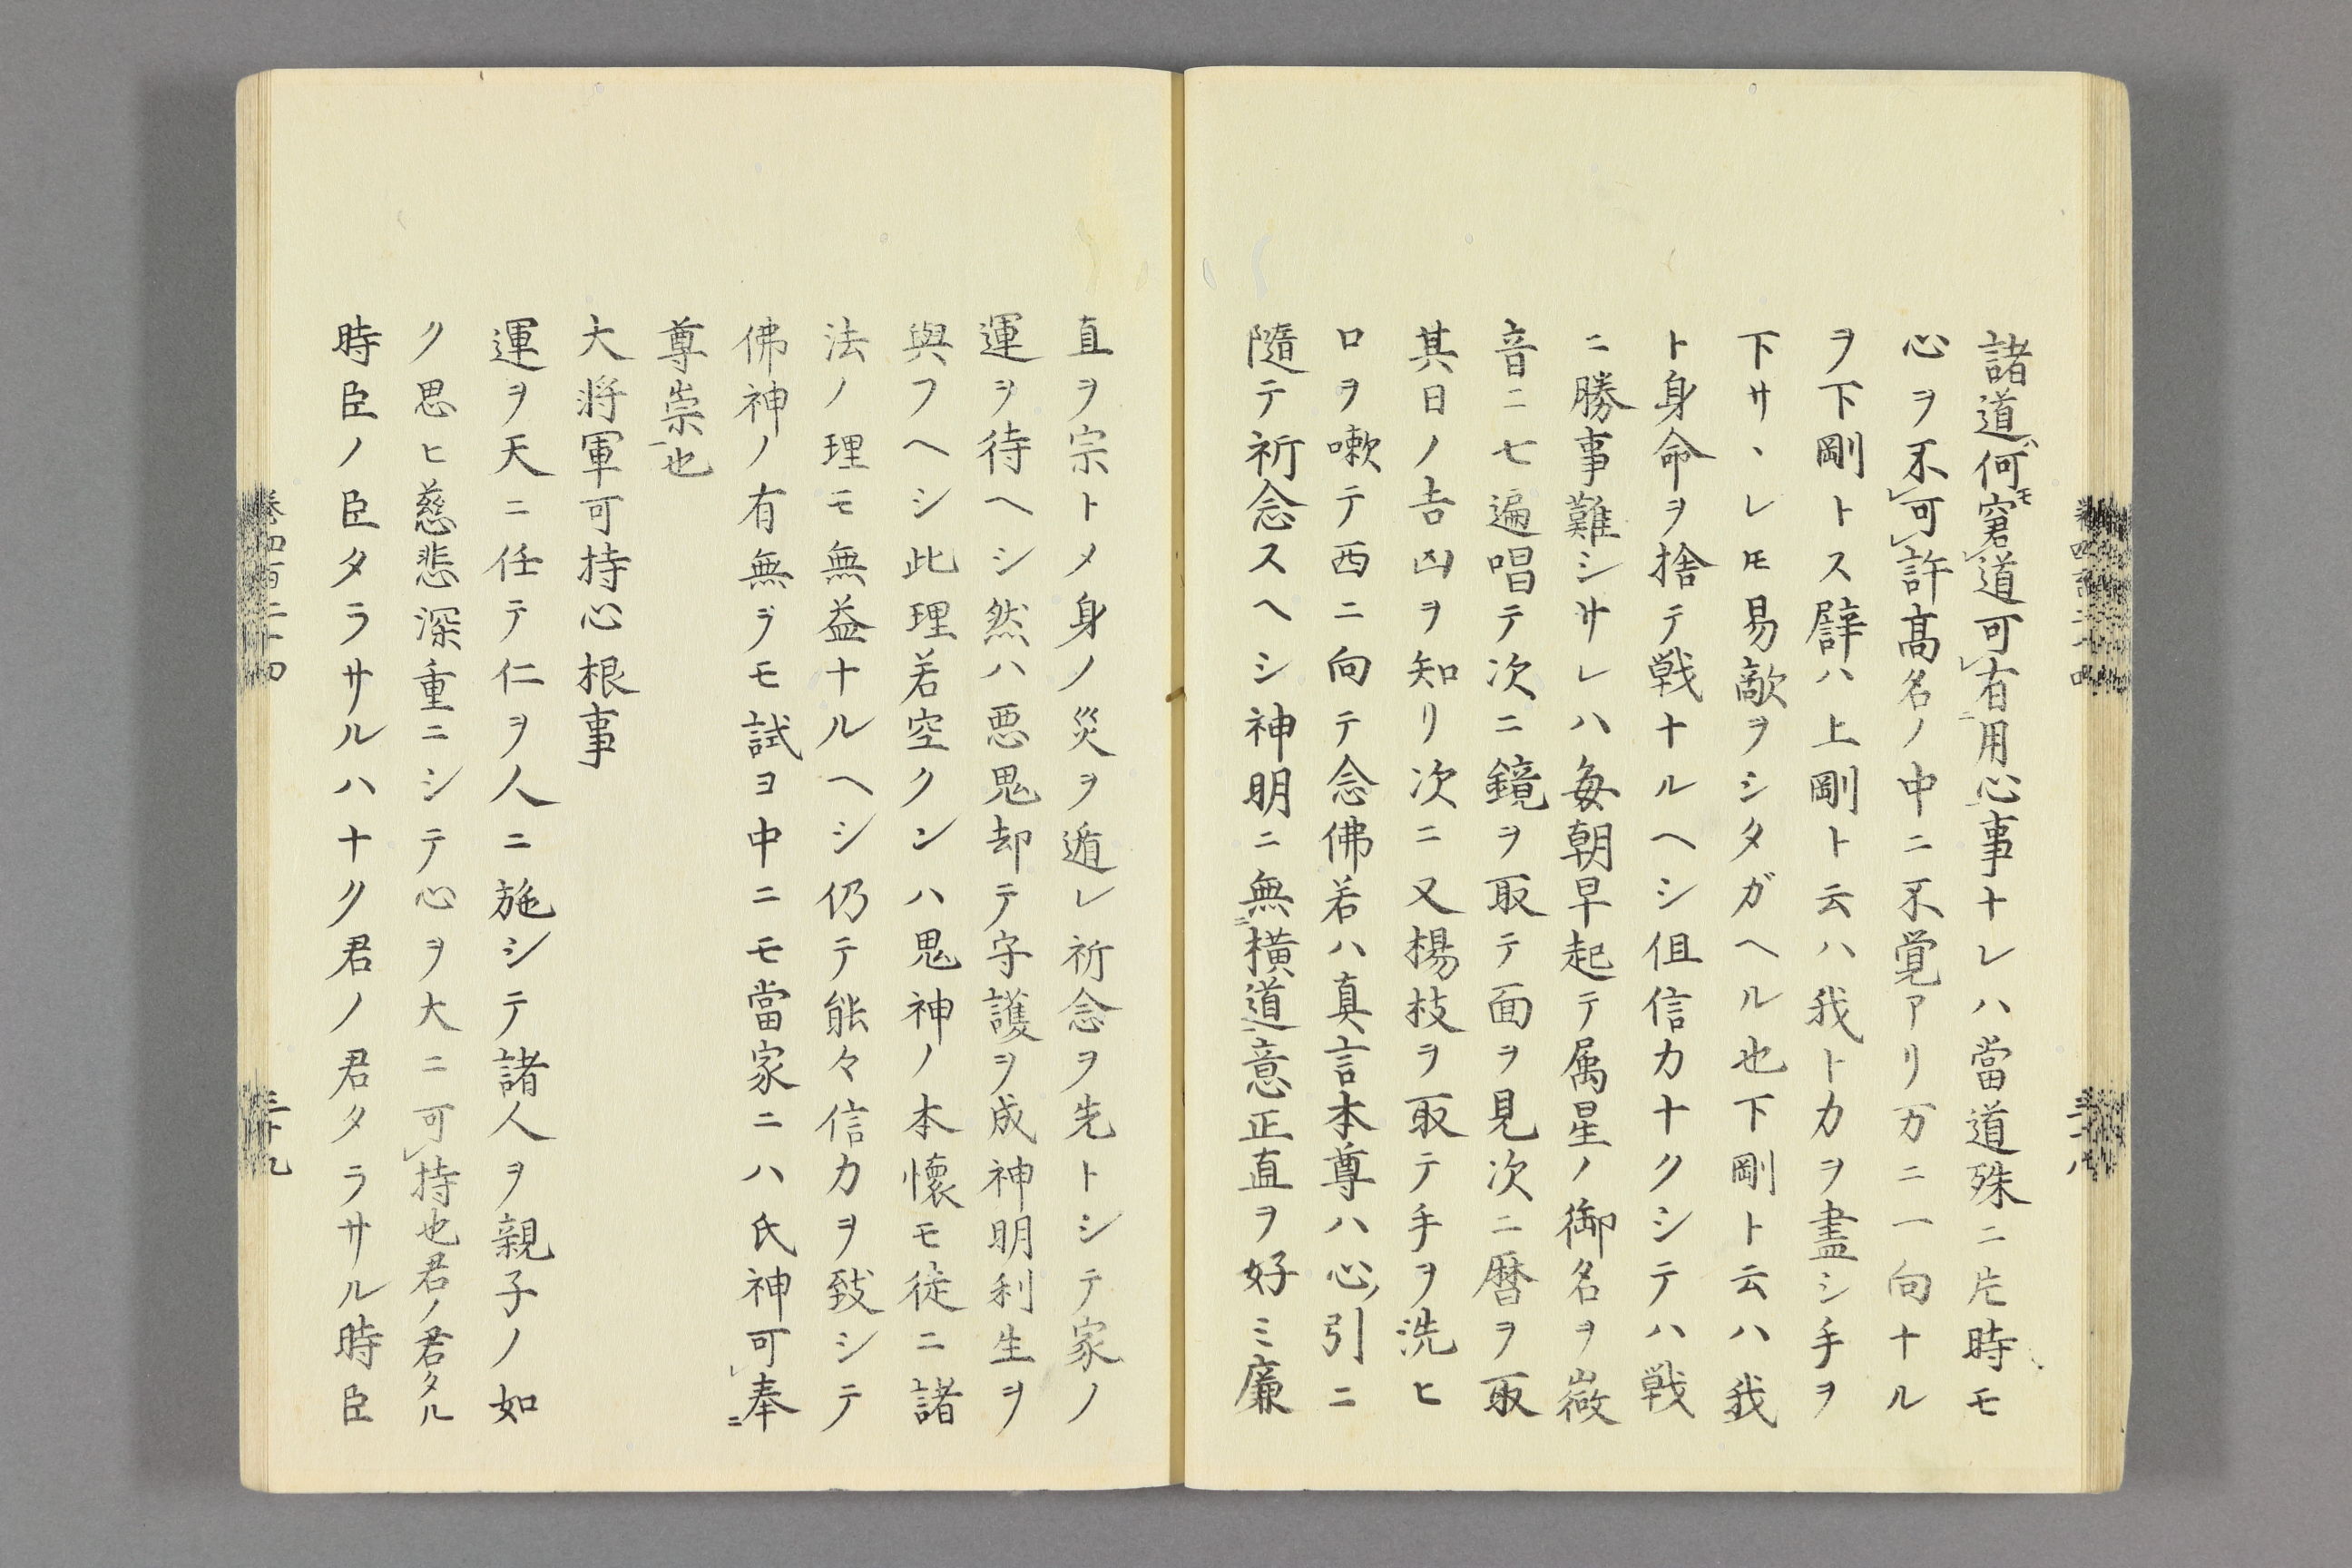 諸道何モ窘道可有用心事ナレハ當道殊ニ片時モ
心ヲ不可許髙名ノ中ニ不覚アリ万ニ一向ナル
ヲ下剛トス辟ハ上剛ト云ハ我ト力ヲ盡シ手ヲ
下サヽレ𪜈易敵ヲシタガヘル也下剛ト云ハ我
ト身命ヲ捨テ戦ナルヘシ但信力ナクシテハ戦
ニ勝事難シサレハ毎朝早起テ属星ノ御名ヲ微
音ニ七遍唱テ次ニ鏡ヲ取テ面ヲ見次ニ暦ヲ取
其日ノ吉凶ヲ知リ次ニ又楊枝ヲ取テ手ヲ洗ヒ
口ヲ嗽テ西ニ向テ念佛若ハ真言本尊ハ心ノ引ニ
隨テ祈念スヘシ神明ニ無横道意正直ヲ好ミ廉
直ヲ宗トメ身ノ災ヲ遁レ祈念ヲ先トシテ家ノ
運ヲ待ヘシ然ハ悪鬼却テ守護ヲ成神明利生ヲ
與フヘシ此理若空クンハ鬼神ノ本懐モ徒ニ諸
法ノ理モ無益ナルヘシ仍テ能々信力ヲ致シテ
佛神ノ有無ヲモ試ヨ中ニモ當家ニハ氏神可奉
尊崇也
大將軍可持心根事
運ヲ天ニ任テ仁ヲ人ニ施シテ諸人ヲ親子ノ如
ク思ヒ慈悲深重ニシテ心ヲ大ニ可持也君ノ君タル
時臣ノ臣タラサルハナク君ノ君タラサル時臣
巻四百二十四
三十九